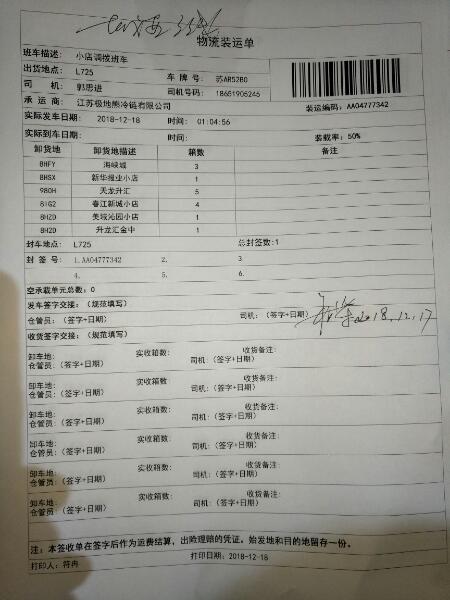 物流装运单
班车描述: 小店调拨班车
出货地点: L725 车 牌 号: 苏AR52B0
司 机: 郭思进 司机号码: 18651906245
承 运 商: 江苏极地熊冷链有限公司 装运编码: AA04777342
实际发车日期: 2018-12-18 时间: 01:04:56
实际到车日期: 时间: 装载率: 50%
卸货地 卸货地描述 箱数 备注
8HFY 海峡城 3
8HSX 新华报业小店 1
980H 天龙升汇 5
8IG2 春江新城小店 4
8HZD 美域沁园小店 1
8H2D 升龙汇金中 1
封车地点: L725 总封签数:1
封 签 号: 1.AA04777342 2. 3
4. 5. 6.
空承载单元总数: 0
发车签字交接: (规范填写)
仓管员: (签字+日期) 司机: (签字+日期) 2018.12.17
收货签字交接: (规范填写)
卸车地: 实收箱数: 收货备注:
仓管员: (签字+日期) 司机: (签字+日期)
卸车地: 实收箱数: 收货备注:
仓管员: (签字+日期) 司机: (签字+日期)
卸车地: 实收箱数: 收货备注:
仓管员: (签字+日期) 司机: (签字+日期)
卸车地: 实收箱数: 收货备注:
仓管员: (签字+日期) 司机: (签字+日期)
卸车地: 实收箱数: 收货备注:
仓管员: (签字+日期) 司机: (签字+日期)
卸车地: 实收箱数: 收货备注:
仓管员: (签字+日期) 司机: (签字+日期)
注: 本签收单在签字后作为运费结算, 出险理赔的凭证。始发地和目的地留存一份。
打印人: 符冉 打印日期: 2018-12-18